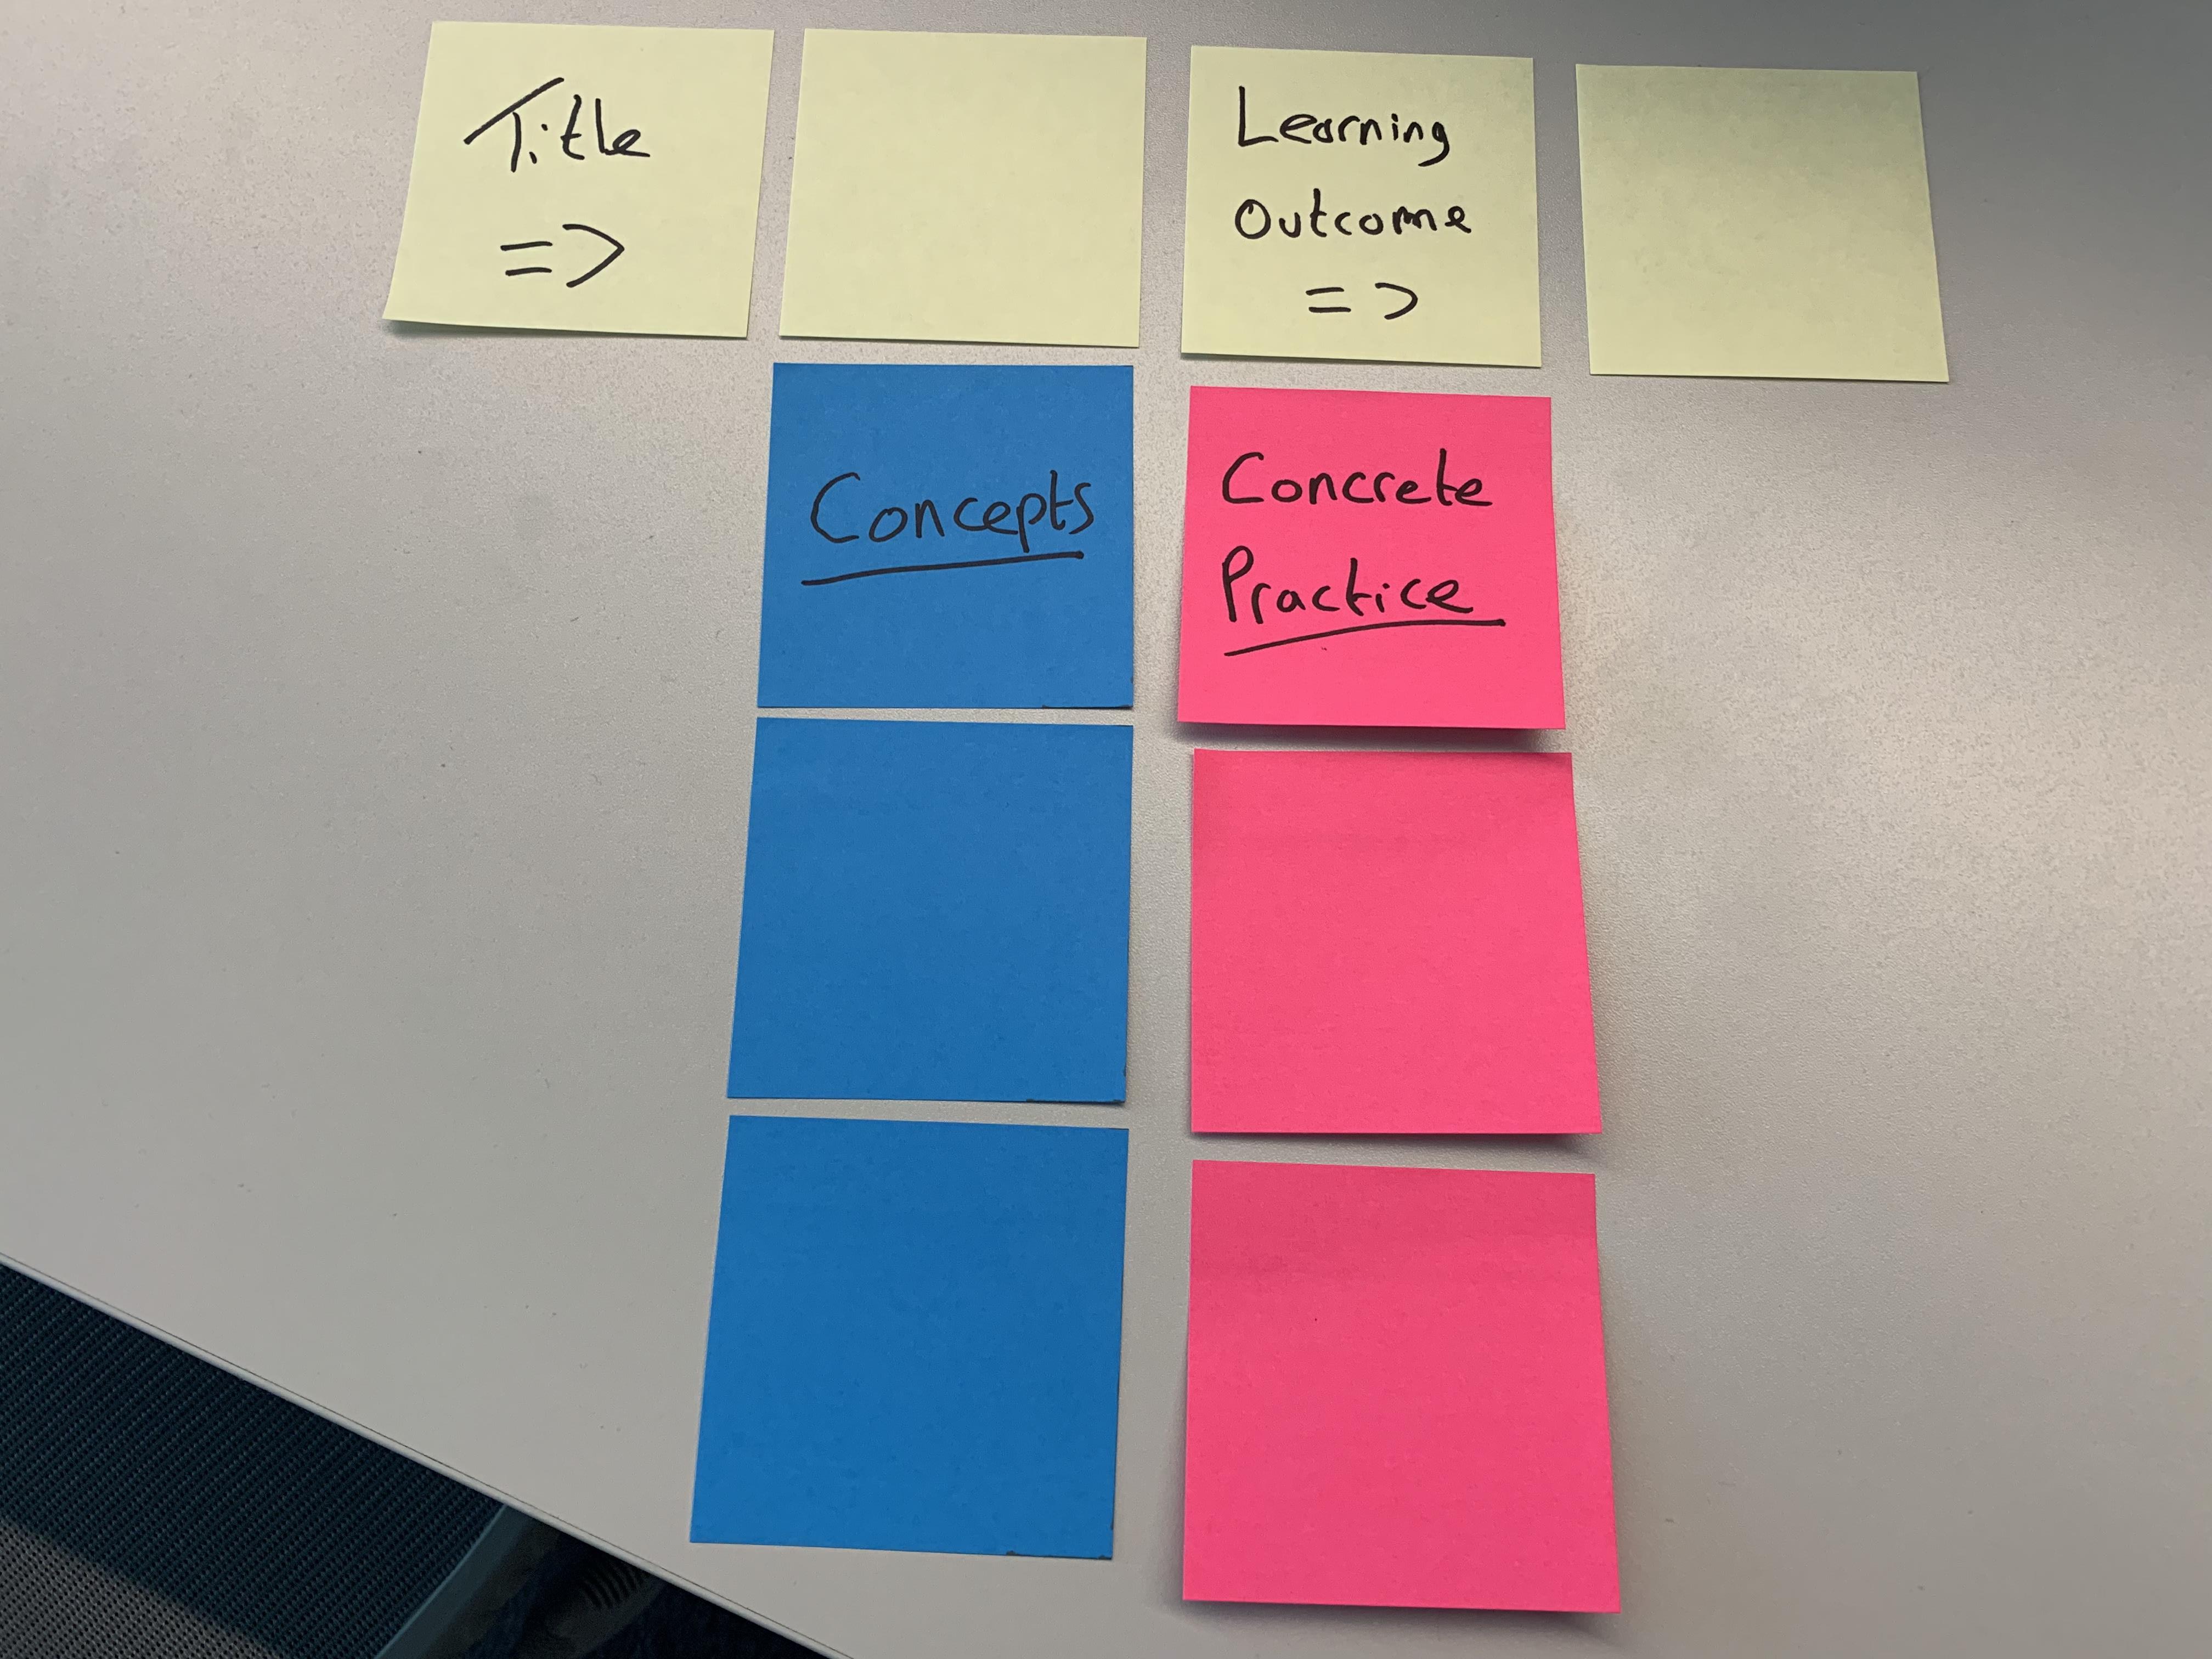 Title
=>
Learning
Outcome
=>
Concepts
Concrete
Practice